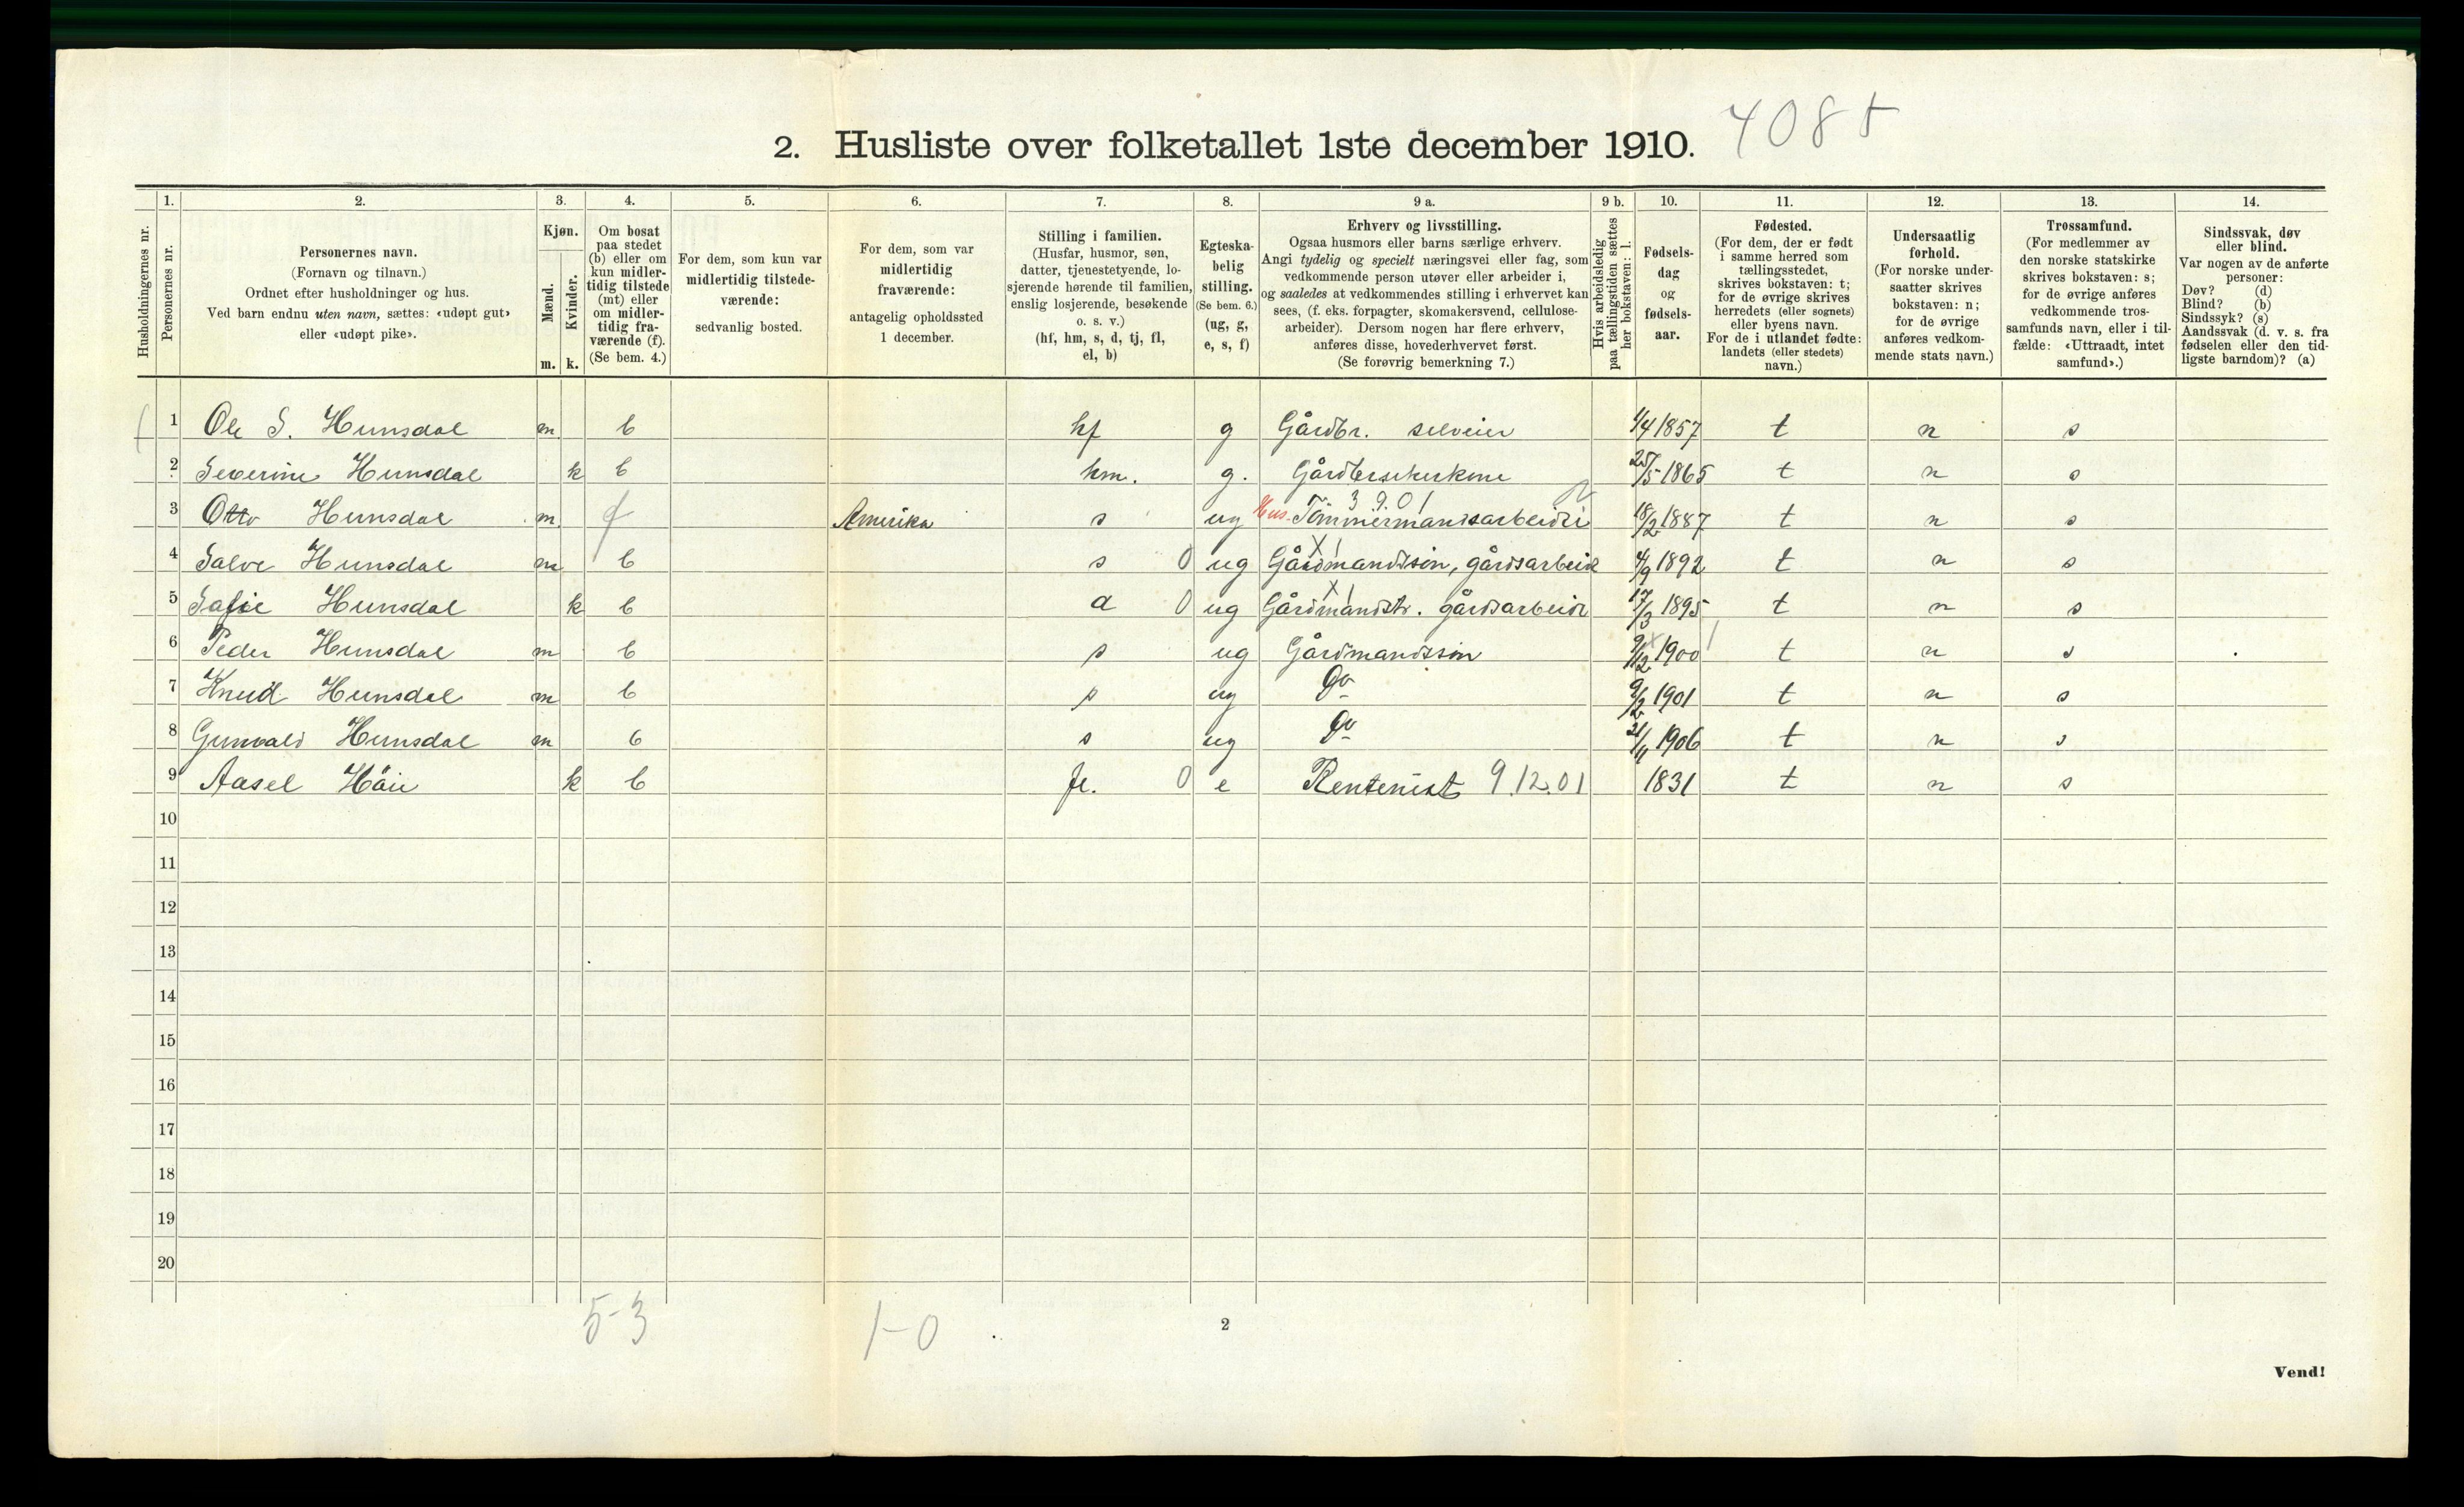 4085
2. Husliste over folketallet 1ste december 1910.
Husholdningernes nr.
1.
Personernes nr.
2.
Personernes navn.
(Fornavn og tilnavn.)
Ordnet efter husholdninger og hus.
Ved barn endnu uten navn, sættes: «udøpt gut»
eller «udøpt pike».
3.
Kjøn.
Mænd.
m.
Kvinder.
k.
4.
Om bosat
paa stedet
(b) eller om
kun midler-
tidig tilstede
(mt) eller
om midler-
tidig fra-
værende (f).
(Se bem. 4.)
5.
For dem, som kun var
midlertidig tilstede-
værende:
sedvanlig bosted.
6.
For dem, som var
midlertidig
fraværende:
antagelig opholdssted
1 december.
7.
Stilling i familien.
(Husfar, husmor, søn,
datter, tjenestetyende, lo-
sjerende hørende til familien,
enslig losjerende, besøkende
o. s. v.)
(hf, hm, s, d, tj, fl,
el, b)
8.
Egteska-
belig
stilling.
(Se bem. 6.)
(ug, g,
e, s, f)
9 a.
Erhverv og livsstilling.
Ogsaa husmors eller barns særlige erhverv.
Angi tydelig og specielt næringsvei eller fag, som
vedkommende person utøver eller arbeider i,
og saaledes at vedkommendes stilling i erhvervet kan
sees, (f. eks. forpagter, skomakersvend, cellulose-
arbeider). Dersom nogen har flere erhverv,
anføres disse, hovederhvervet først.
(Se forøvrig bemerkning 7.)
9 b.
Hvis arbeidsledig
paa tællingstiden sættes
her bokstaven: l.
10.
Fødsels-
dag
og
fødsels-
aar.
11.
Fødested.
(For dem, der er født
i samme herred som
tællingsstedet,
skrives bokstaven: t;
for de øvrige skrives
herredets (eller sognets)
eller byens navn.
For de i utlandet fødte:
landets (eller stedets)
navn.)
12.
Undersaatlig
forhold.
(For norske under-
saatter skrives
bokstaven: n;
for de øvrige
anføres vedkom-
mende stats navn.)
13.
Trossamfund.
(For medlemmer av
den norske statskirke
skrives bokstaven: s;
for de øvrige anføres
vedkommende tros-
samfunds navn, eller i til-
fælde: «Uttraadt, intet
samfund».)
14.
Sindssvak, døv
eller blind.
Var nogen av de anførte
personer:
Døv? (d)
Blind? (b)
Sindssyk? (s)
Aandssvak (d. v. s. fra
fødselen eller den tid-
ligste barndom)? (a)
1 Ole S. Hunsdal m b hf g Gårdbr. selveier 1/4 1857 t n s
2 Severine Hunsdal k b hm. g. 25/5 1865 t n s
3 9 0 1
3 Otto Hunsdal m f Amerika s ug Hus. Tömmermandsarbeide 18/2 1887 t n s
X 1
4 Salve Hunsdal m b s 0 ug Gårdmandssön, gårdsarbeide 4/9 1892 t n s
X 1
5 Sofie Hunsdal k b d 0 ug Gårdmandstr. gårdsarbeide 17/3 1895 t n s
6 Peder Hunsdal m b s ug Gårdmandssön 9/12 1900 t n s
7 Knud Hunsdal m b s ug Do 9/2 1901 t n s
8 Gunvald Hunsdal m b s ug Do 21/11 1906 t n s
9 Aasel Höie k b fl. 0 e Rentenist 9.12.01 1831 t n s
10
11
12
13
14
15
16
17
18
19
20
5-3
1-0
2
Vend!